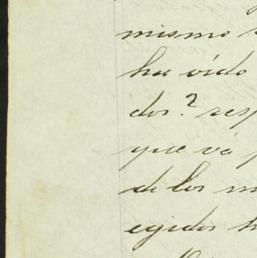 mismo
ha oido
dor.? resp
que vá
de los
egidos